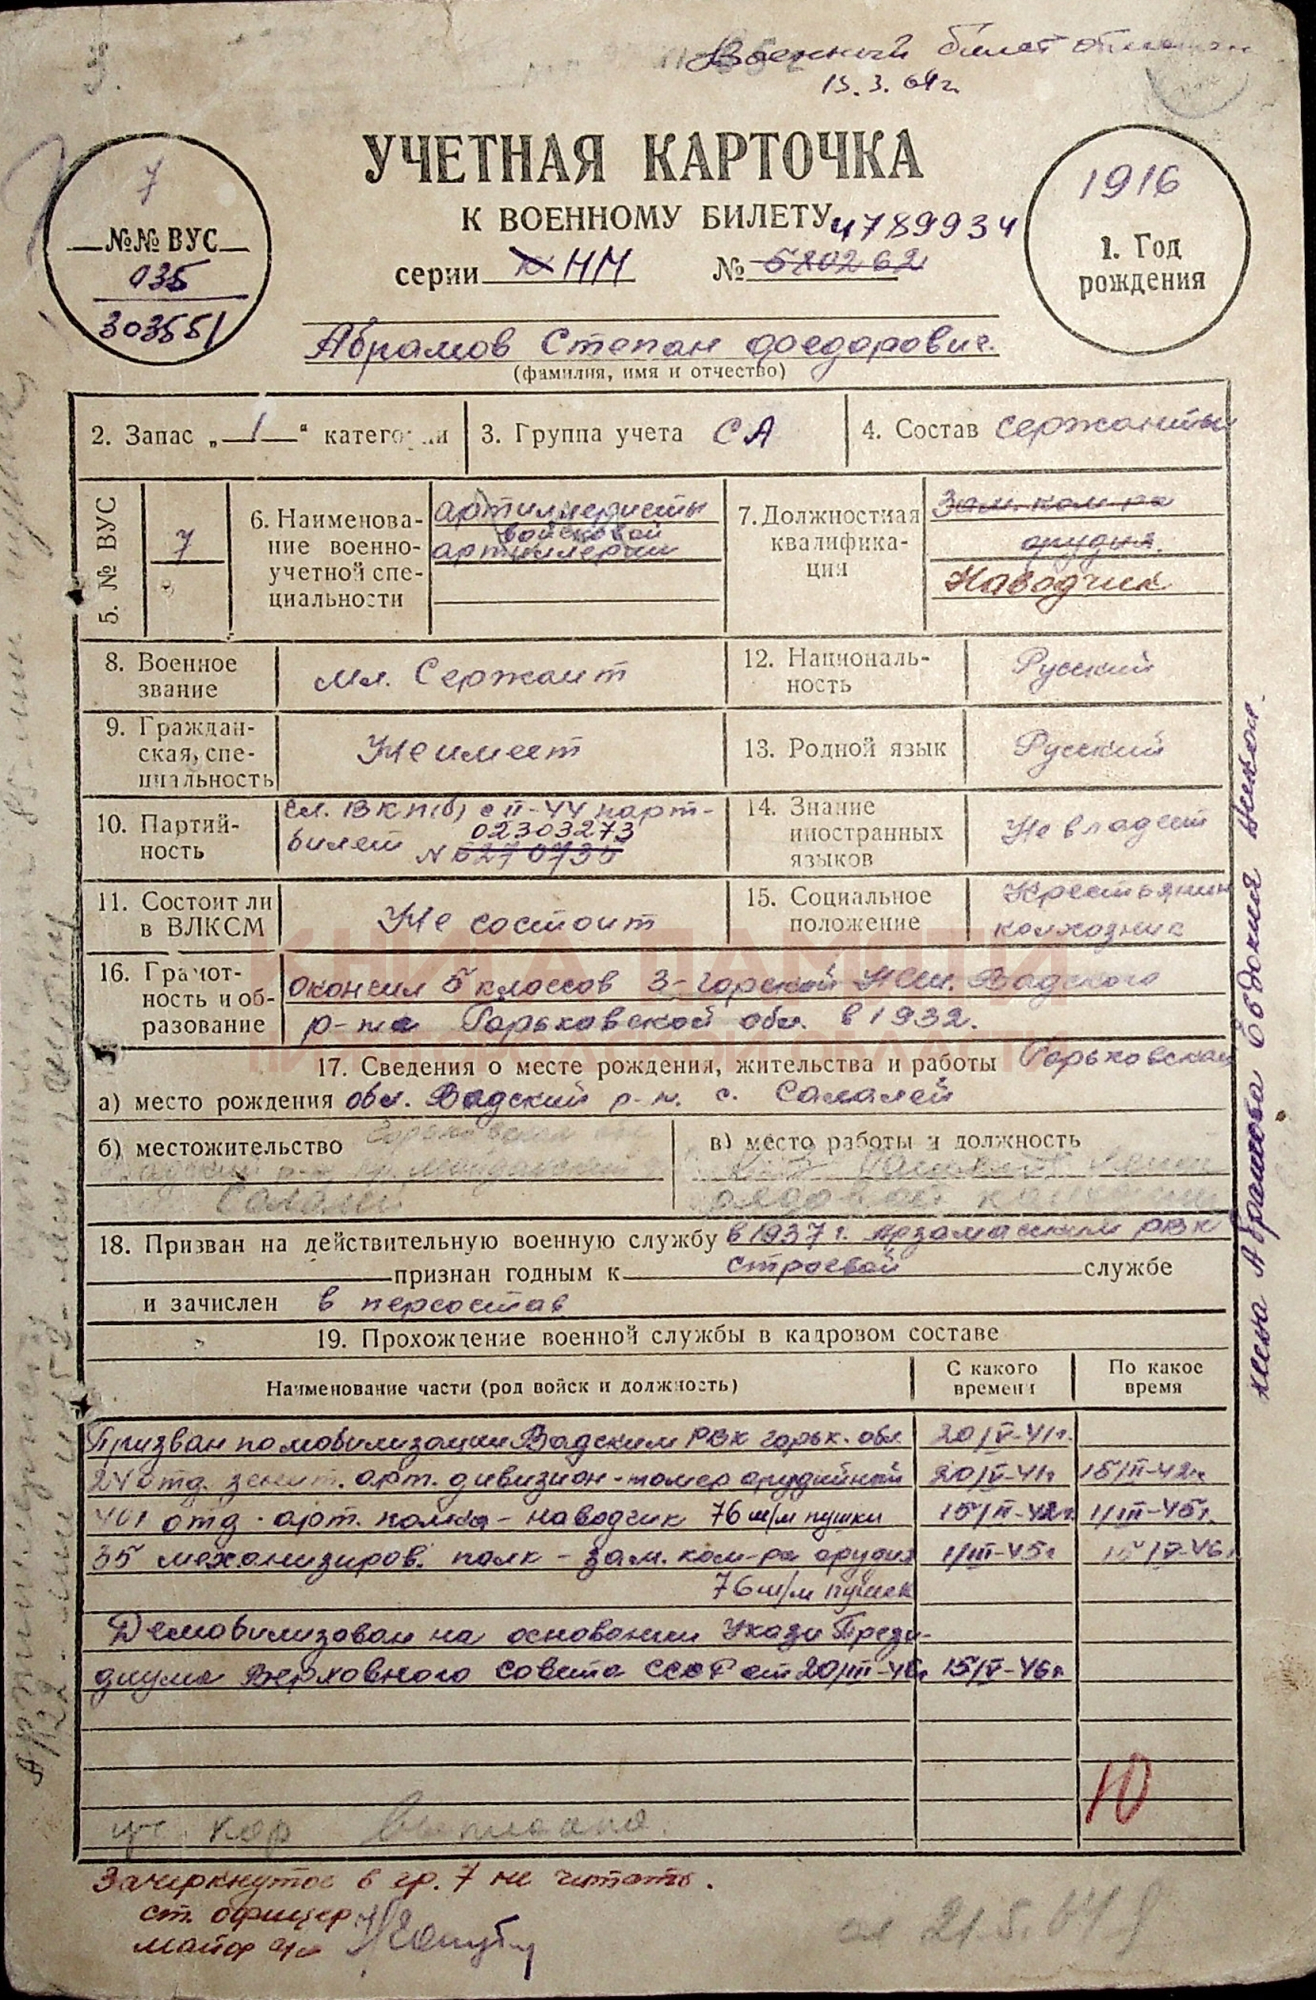 Военный билет
13.3.64г.
УЧЕТНАЯ КАРТОЧКА
К ВОЕННОМУ БИЛЕТУ 4789934
серии НМ № 580262
7
№№ ВУС
035
303551
1916
1. Год
рождения
Абрамов Степан Федорович.
(фамилия, имя и отчество)
2. Запас „1" категории
3. Группа учета СА
4. Состав сержанты
5. № ВУС
7
6. Наименова-
ние военно-
учетной спе-
циальности
артиллеристы
войсковой
артиллерии
7. Должностная
квалифика-
ция
Зам. ком-ра
орудия.
Наводчик
8. Военное
звание
Мл. Сержант
12. Националь-
ность
Русский
9. Граждан-
ская, спе-
циальность
Не имеет
13. Родной язык
Русский
10. Партий-
ность
Чл. ВКП(б) с II-44 парт-
билет 02303273
№ 6270736
14. Знание
иностранных
языков
Не владеет
11. Состоит ли
в ВЛКСМ
Не состоит
15. Социальное
положение
Крестьянин
колхозник
16. Грамот-
ность и об-
разование
окончил 5 классов 3-Горской НСШ. Вадского
р-на Горьковской обл. в 1932.
КНИГА ПАМЯТИ
НИЖЕГОРОДСКОЙ ОБЛАСТИ
17. Сведения о месте рождения, жительства и работы Горьковская
а) место рождения обл. Вадский р-н. с. Салалей
б) местожительство Горьковская
Вадский р-н
Салалей
в) место работы и должность
рядовой колхозник
18. Призван на действительную военную службу в 1937 г. Арзамасским РВК
признан годным к строевой службе
и зачислен в персостав
19. Прохождение военной службы в кадровом составе
Наименование части (род войск и должность)
С какого
времени
По какое
время
Призван по мобилизации Вадским РВК горьк. обл. 20/IV-41г.
240 отд. зенит. арт. дивизион - номер орудийный 20/IV-41г 15/II-42г
401 отд. арт. полка - наводчик 76 м/м пушки 15/II-42г. 1/III-45г.
35 механизиров. полк - зам. ком-ра орудия 1/III-45г 15/IV-46г
76 м/м пушек
Демобилизован на основании Указа Прези-
диума Верховного Совета СССР от 20/III-46г 15/V-46г.
10
уч. кар
Зачеркнутое в гр. 7 не читать.
ст. офицер
майор а/с
21.5.64
жена Абрамова Евдокия Никол.